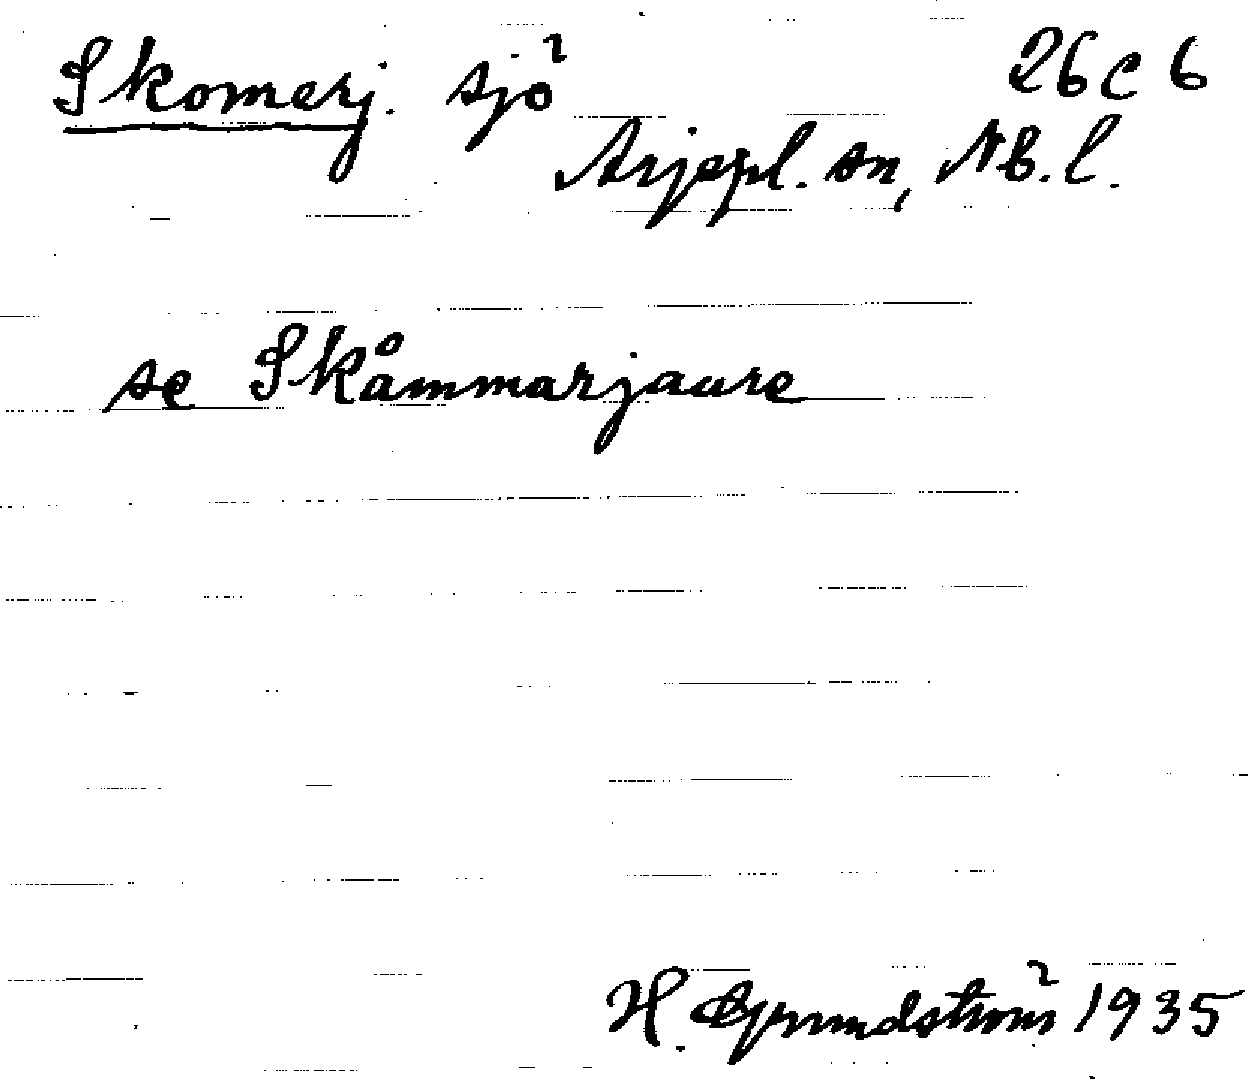 Skomerj. sjö 26 C 6
Arjepl. sn, Nb. l.
se Skåmmarjaure
H. Grundström 1935